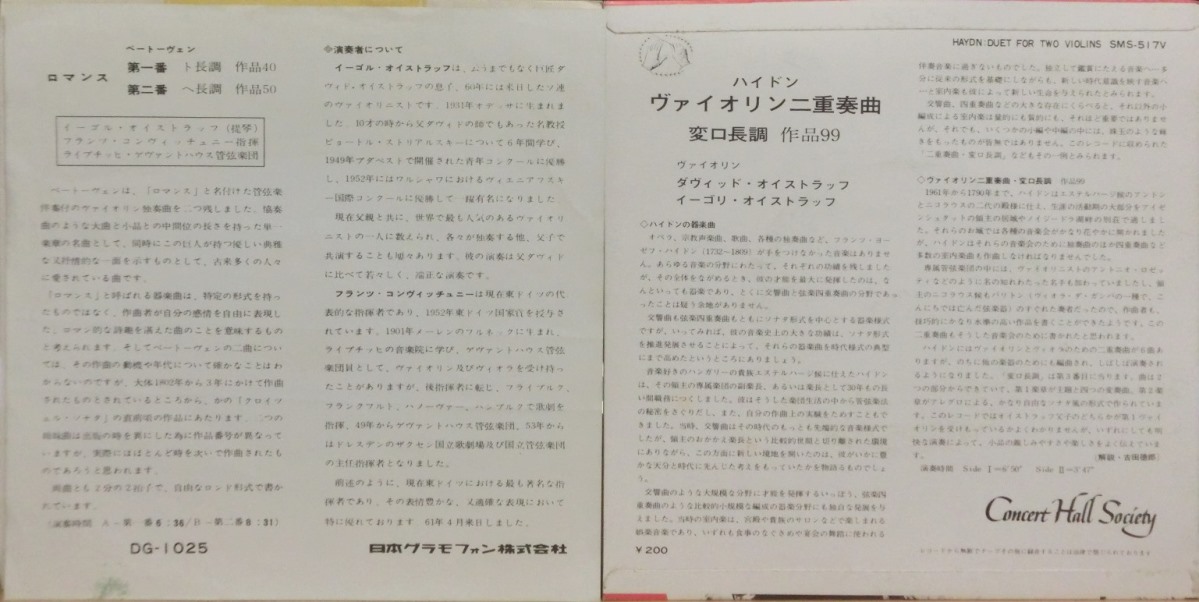 ベートーヴェン
ロマンス
第一番 ト長調 作品40
第二番 ヘ長調 作品50
イーゴル・オイストラッフ(提琴)
フランツ・コンヴィッチュニー指揮
ライプチッヒ・ゲヴァントハウス管弦楽団
ベートーヴェンは、「ロマンス」と名付けた管弦楽
伴奏付のヴァイオリン独奏曲を二つ残しました。協奏
曲のような大曲と小品との中間位の長さを持った単一
楽章の名曲として、同時にこの巨人が持つ優しい典雅
な又抒情的な一面を示すものとして、古来多くの人々
に愛されている曲です。
「ロマンス」と呼ばれる器楽曲は、特定の形式を持っ
たものではなく、作曲者が自分の感情を自由に表現し
た、ロマン的な詩趣を湛えた曲のことを意味するもの
と考えられます。そしてベートーヴェンの二曲につい
ては、その作曲の動機や年代について確かなことはわ
からないのですが、大体1802年から3年にかけて作曲
されたものとされているところから、かの「クロイツ
ェル・ソナタ」の直前頃の作品にあたります。二つの
曲は出版の時を異にした為に作品番号が異なって
いますが、実際にはほとんど時を次いで作曲されたも
のであろうと思われます。
両曲とも2分の2拍子で、自由なロンド形式で書か
れています。
(演奏時間 A-第一番6:36/B-第二番8:31)
DG-1025
◇演奏者について
イーゴル・オイストラッフは、云うまでもなく巨匠ダ
ヴィド・オイストラッフの息子、60年には来日したソ連
のヴァイオリニストです。1931年オデッサに生まれま
した。10才の時から父ダヴィドの師でもあった名教授
ピョートル・ストリアルスキーについて6年間学び、
1949年ブダペストで開催された青年コンクールに優勝
し、1952年にはワルシャワにおけるヴィエニアフスキ
ー国際コンクールに優勝して一躍有名になりました。
現在父親と共に、世界で最も人気のあるヴァイオリ
ニストの一人に数えられ、各々が独奏する他、父子で
共演することも屡々あります。彼の演奏は父ダヴィド
に比べて若々しく、端正な演奏です。
フランツ・コンヴィッチュニーは現在東ドイツの代
表的な指揮者であり、1952年東ドイツ国家賞を授与さ
れています。1901年メーレンのフルネックに生まれ、
ライプチッヒの音楽院に学び、ゲヴァントハウス管弦
楽団員として、ヴァイオリン及びヴィオラを受け持っ
たことがありますが、後指揮者に転じ、フライブルク、
フランクフルト、ハノーヴァー、ハンブルクで歌劇を
指揮、49年からゲヴァントハウス管弦楽団、53年から
はドレスデンのザクセン国立歌劇場及び国立管弦楽団
の主任指揮者となりました。
前述のように、現在東ドイツにおける最も著名な指
揮者であり、その表情豊かな、又適確な表現において
特に優れております 61年4月来日しました。
日本グラモフォン株式会社
HAYDN:DUET FOR TWO VIOLINS SMS-517V
ハイドン
ヴァイオリン二重奏曲
変ロ長調 作品99
ヴァイオリン
ダヴィッド・オイストラッフ
イーゴリ・オイストラッフ
◇ハイドンの器楽曲
オペラ、宗教声楽曲、歌曲、各種の独奏曲など、フランツ・ヨー
ゼフ・ハイドン(1732〜1809)が手をつけなかった音楽はありませ
ん。あらゆる音楽の分野にわたって、それぞれの功績を残しました
が、その全体をながめるとき、彼の才能を最大に発揮したのは、な
んといっても器楽であり、とくに交響曲と弦楽四重奏曲の分野であ
ったことは疑う余地がありません。
交響曲も弦楽四重奏曲もともにソナタ形式を中心とする器楽様式
ですが、いってみれば、彼の音楽史上の大きな功績は、ソナタ形式
を推進発展させることによって、それらの器楽曲を時代様式の典型
にまで高めたというところにありましょう。
音楽好きのハンガリーの貴族エステルハージ候に仕えたハイドン
は、その領主の専属楽団の副楽長、あるいは楽長として30年もの長
い間職務につくしました。彼はそうした楽団生活の中から管弦楽法
の秘密をさぐりだし、また、自分の作曲上の実験をためすこともで
きました。当時、交響曲はその時代のもっとも先端的な音楽様式で
したが、領主のおかかえ楽長という比較的世間と切り離された環境
にありながら、この方面に新しい境地を開いたのは、彼がいかに豊
かな天分と時代に先んじた考えをもっていたかを物語るものでしょ
う。
交響曲のような大規模な分野に才能を発揮するいっぽう、弦楽四
重奏曲のような比較的小規模な編成の器楽分野にも独自な発展を与
えました。当時の室内楽は、宮殿や貴族のサロンなどで楽しまれる
娯楽音楽であり、いずれも食事のなぐさめや宴会の舞踏に使われる
¥200
伴奏音楽に過ぎないものでした。独立して鑑賞にたえる音楽へ―多
分に従来の形式を基礎にしながらも、新しい時代意識を映す音楽へ
―と室内楽も彼によって新しい生命を与えられたとみられます。
交響曲、四重奏曲などの大きな存在にくらべると、それ以外の小
編成による室内楽は量的にも質的にも、それほど重要ではありませ
んが、それでも、いくつかの小編や中編の中には、珠玉のような輝
きをもったものが皆無ではありません。このレコードに収められた
「二重奏曲・変ロ長調」などもその一例とみられます。
◇ヴァイオリン二重奏曲・変ロ長調 作品99
1961年から1790年まで、ハイドンはエステルハージ候のアントン
とニコラウスの二代の殿様に仕え、生涯の活動期の大部分をアイゼ
ンシュタットの領主の居城やノイジードラ湖畔の別荘で過しまし
た。それらのお城では各種の音楽会がかなり花やかに開かれました
が、ハイドンはそれらの音楽会のために独奏曲のほか四重奏曲など
多数の室内楽曲も作曲しなければなりませんでした。
専属管弦楽団の中には、ヴァイオリニストのアントニオ・ロゼッ
ティなどのように名の知れわたった名手も加わっていましたし、領
主のニコラウス候もバリトン(ヴィオラ・ダ・ガンバの一種で、こ
んにちでは亡んだ弦楽器)のすぐれた奏者だったので、作曲者も、
技巧的にかなり水準の高い作品を書くことができたようです。この
二重奏曲もそうした音楽会のために書かれたと思われます。
ハイドンにはヴァイオリンとヴィオラのための二重奏曲が6曲あ
りますが、のちに他の楽器のためにも編曲され、しばしば演奏され
るようになりました。「変ロ長調」は第3番目に当ります。曲は2
つの部分からできていて、第1楽章が主題と四つの変奏曲、第2楽
章がアレグロによる、かなり自由なソナタ風の形式で作られていま
す。このレコードではオイストラッフ父子のどちらかが第1ヴァイ
オリンを受けもっているかよくわかりませんが、いずれにしても明
快な演奏によって、小品の親しみやすさや楽しさをよく伝えていま
す。 [解説・吉田徳郎]
演奏時間 Side I=6'50" Side II=3'47"
Concert Hall Society